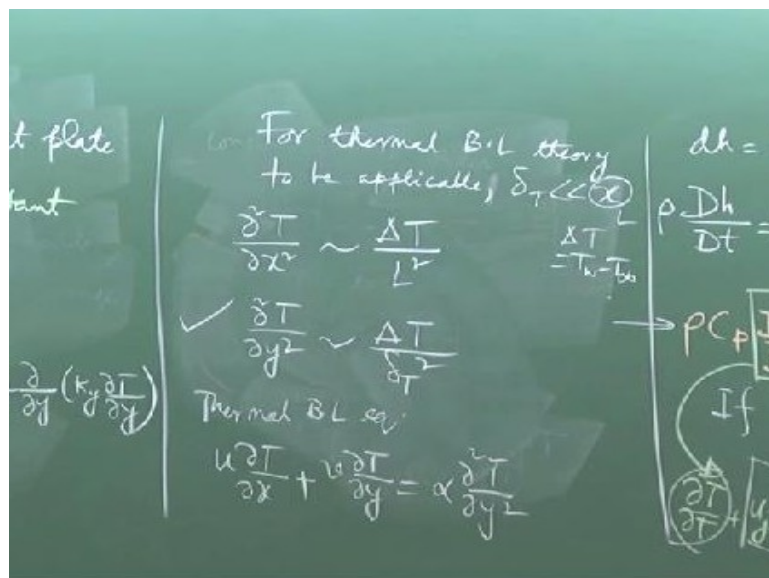 t plate
tant
∂/∂y (Ky ∂T/∂y)
For thermal B.L theory
to be applicable, δ_T << x
L
∂²T/∂x² ~ ΔT/L²
ΔT
= Tw - T∞
✓ ∂²T/∂y² ~ ΔT/δ_T²
Thermal BL eq.
u ∂T/∂x + v ∂T/∂y = α ∂²T/∂y²
dh =
ρ Dh/Dt =
→ ρCp
If
∂T/∂T +